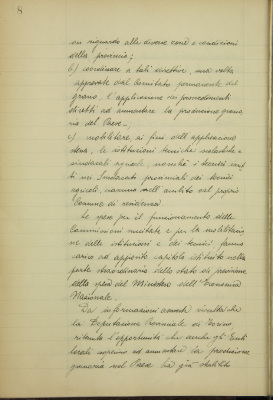 8
con riguardo alle diverse zone e condizioni
della provincia;
b) coordinare a tali direttive, una volta
approvate dal Comitato permanente del
grano, l'applicazione dei provvedimenti
diretti ad aumentare la produzione grana
ria del Paese;
c) mobilitare, ai fini dell'applicazione
stessa, le istituzioni tecniche scolastiche e
sindacati agricoli, nonchè i tecnici iscrit
ti nei Sindacati provinciali dei tecnici
agricoli, ciascuno nell'ambito del proprio
Comune di residenza.
Le spese per il funzionamento delle
Commissioni suddette e per la mobilitazio
ne delle istituzioni e dei tecnici fanno
carico ad apposito capitolo istituito nella
parte straordinaria dello stato di previsione
della spesa del Ministero dell'Economia
Nazionale.
Da informazioni assunte risulta che
la Deputazione Provinciale di Torino
ritenuta l'opportunità che anche gli Enti
locali concorrano ad aumentare la produzione
granaria nel Paese ha già stabilito